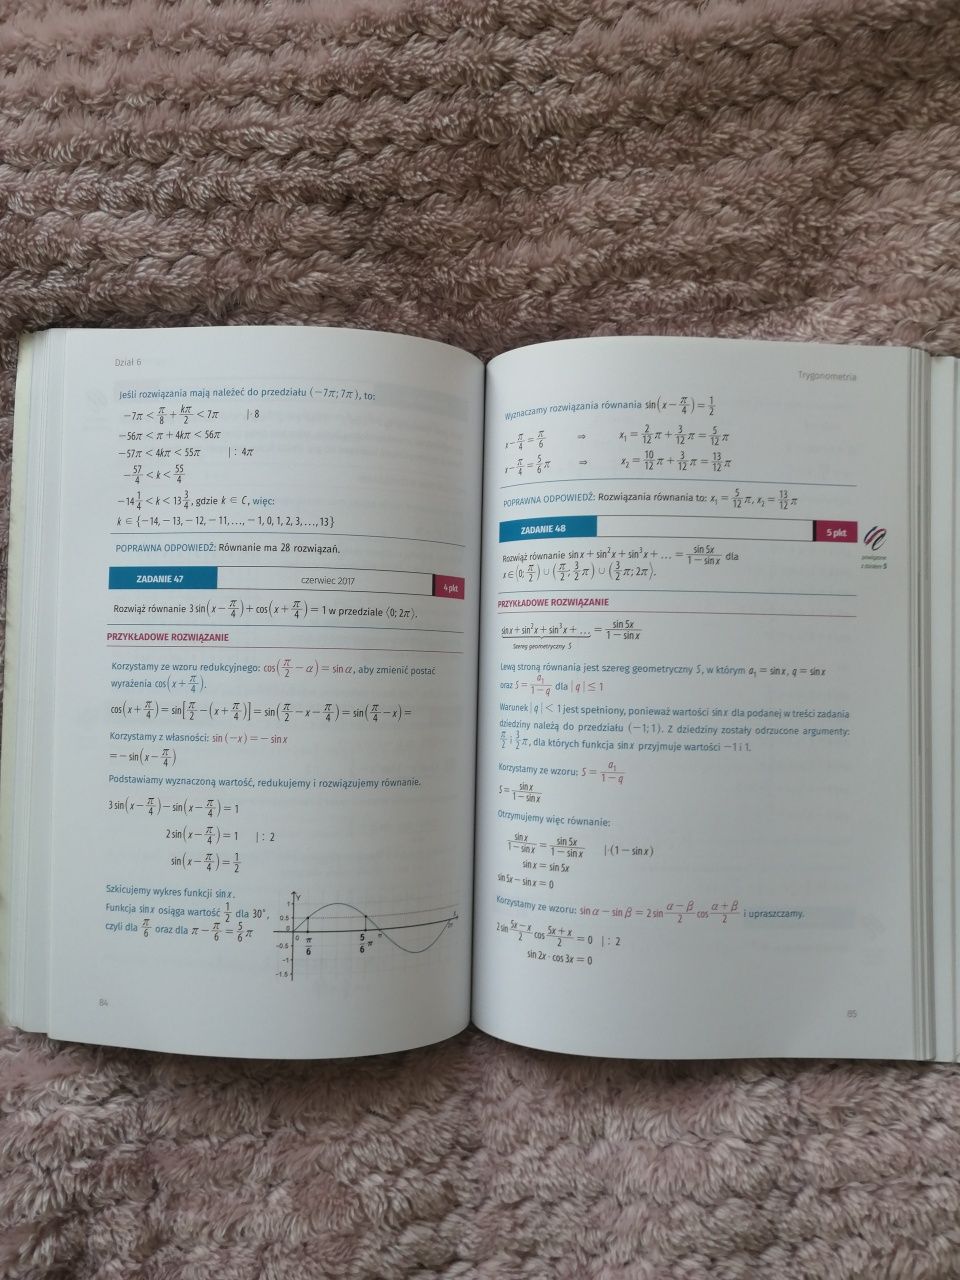 Dział 6
Jeśli rozwiązania mają należeć do przedziału (−7π; 7π), to:
−7π < π/8 + kπ/2 < 7π |· 8
−56π < π + 4kπ < 56π
−57π < 4kπ < 55π |: 4π
−57/4 < k < 55/4
−14 1/4 < k < 13 3/4, gdzie k ∈ C, więc:
k ∈ {−14, −13, −12, −11, ..., −1, 0, 1, 2, 3, ..., 13}
POPRAWNA ODPOWIEDŹ: Równanie ma 28 rozwiązań.
ZADANIE 47 czerwiec 2017 4 pkt
Rozwiąż równanie 3 sin(x − π/4) + cos(x + π/4) = 1 w przedziale ⟨0; 2π⟩.
PRZYKŁADOWE ROZWIĄZANIE
Korzystamy ze wzoru redukcyjnego: cos(π/2 − α) = sin α, aby zmienić postać
wyrażenia cos(x + π/4).
cos(x + π/4) = sin[π/2 − (x + π/4)] = sin(π/2 − x − π/4) = sin(π/4 − x) =
Korzystamy z własności: sin(−x) = − sin x
= − sin(x − π/4)
Podstawiamy wyznaczoną wartość, redukujemy i rozwiązujemy równanie.
3 sin(x − π/4) − sin(x − π/4) = 1
2 sin(x − π/4) = 1 |: 2
sin(x − π/4) = 1/2
Szkicujemy wykres funkcji sin x.
Funkcja sin x osiąga wartość 1/2 dla 30°,
czyli dla π/6 oraz dla π − π/6 = 5/6 π
Y
1
0.5
0
-0.5
-1
-1.5
π/6
5/6 π
π
2π
84
Trygonometria
Wyznaczamy rozwiązania równania sin(x − π/4) = 1/2
x − π/4 = π/6 ⇒ x₁ = 2/12 π + 3/12 π = 5/12 π
x − π/4 = 5/6 π ⇒ x₂ = 10/12 π + 3/12 π = 13/12 π
POPRAWNA ODPOWIEDŹ: Rozwiązania równania to: x₁ = 5/12 π, x₂ = 13/12 π
ZADANIE 48 5 pkt
Rozwiąż równanie sin x + sin²x + sin³x + ... = sin 5x / 1 − sin x dla
x ∈ ⟨0; π/2) ∪ (π/2; 3/2 π) ∪ (3/2 π; 2π⟩.
powiązane
z działem 5
PRZYKŁADOWE ROZWIĄZANIE
sin x + sin²x + sin³x + ... = sin 5x / 1 − sin x
Szereg geometryczny S
Lewą stroną równania jest szereg geometryczny S, w którym a₁ = sin x, q = sin x
oraz S = a₁ / 1 − q dla |q| ≤ 1
Warunek |q| < 1 jest spełniony, ponieważ wartości sin x dla podanej w treści zadania
dziedziny należą do przedziału (−1; 1). Z dziedziny zostały odrzucone argumenty:
π/2 i 3/2 π, dla których funkcja sin x przyjmuje wartości −1 i 1.
Korzystamy ze wzoru: S = a₁ / 1 − q
S = sin x / 1 − sin x
Otrzymujemy więc równanie:
sin x / 1 − sin x = sin 5x / 1 − sin x |·(1 − sin x)
sin x = sin 5x
sin 5x − sin x = 0
Korzystamy ze wzoru: sin α − sin β = 2 sin α − β / 2 cos α + β / 2 i upraszczamy.
2 sin 5x − x / 2 cos 5x + x / 2 = 0 |: 2
sin 2x · cos 3x = 0
85